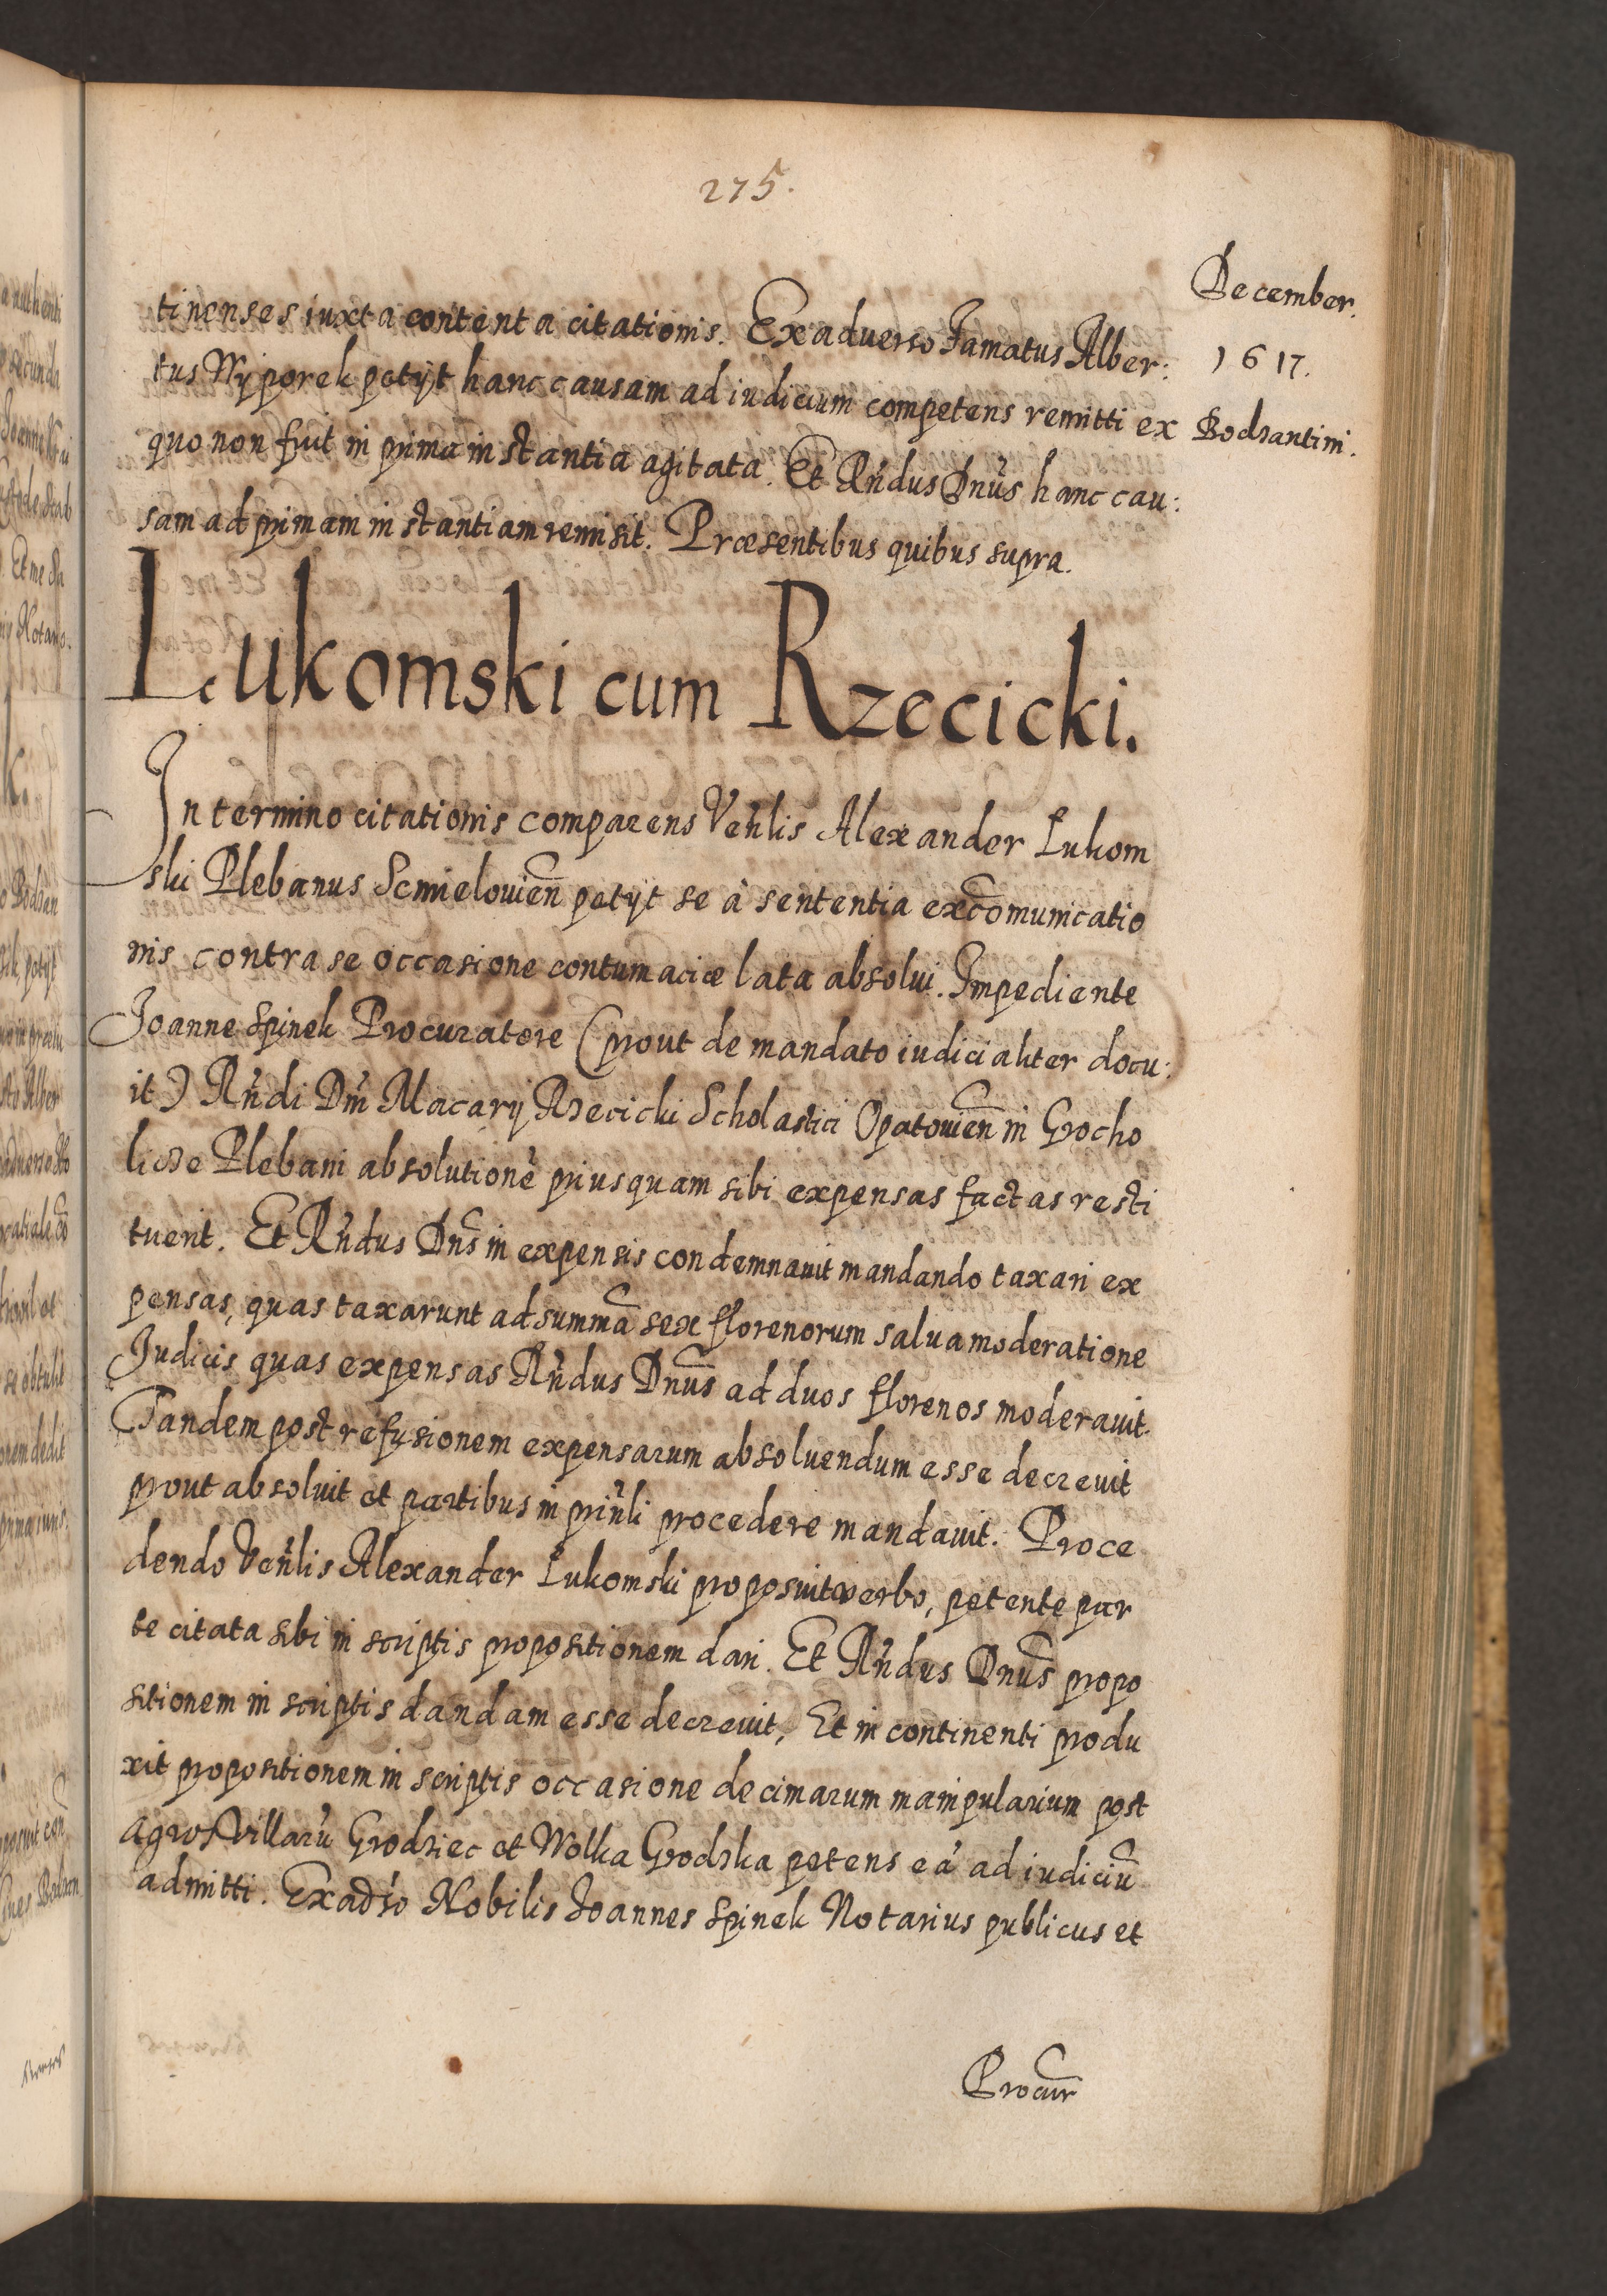 275.
December.
1617.
Bodzantini.
tinenses iuxta contenta citationis. Ex aduerso Famatus Alber:
tus Wyporek petÿt hanc causam ad iudicium competens remitti ex
quo non fuit in prima instantia agitata. Et Rńdus Dnus hanc cau:
sam ad primam instantiam remisit. Præsentibus quibus supra.
Lukomski cum Rzecicki.
In termino citationis comparens Venlis Alexander Lukom
ski Plebanus Scmielouien petÿt se à sententia excomunicatio
nis contra se occasione contumaciæ lata absolui. Impediente
Joanne Spinek Procuratore (prout de mandato iudicialiter docu:
it) Rńdi Dni Macarÿ Rzecicki Scholastici Opatouien in Grocho
licze Plebani absolutione priusquam sibi expensas factas resti
tuerit. Et Rńdus Dns in expensis condemnauit mandando taxari ex
pensas, quas taxarunt ad summa sex florenorum salua moderatione
Judicis quas expensas Rńdus Dnus ad duos florenos moderauit.
Tandem post refusionem expensarum absoluendum esse decreuit
prout absoluit et partibus in prinli procedere mandauit. Proce
dendo Venlis Alexander Lukomski proposuit verbo, petente par
te citata sibi in scriptis propositionem dari. Et Rńdus Dnus propo
sitionem in scriptis dandam esse decreuit, Et in continenti produ
xit propositionem in scriptis occasione decimarum manipularium post
agros villarú Grodziec et Wolka Grodzka petens eá ad iudiciu
admitti. Ex adso Nobilis Joannes Spinek Notarius publicus et
Procur